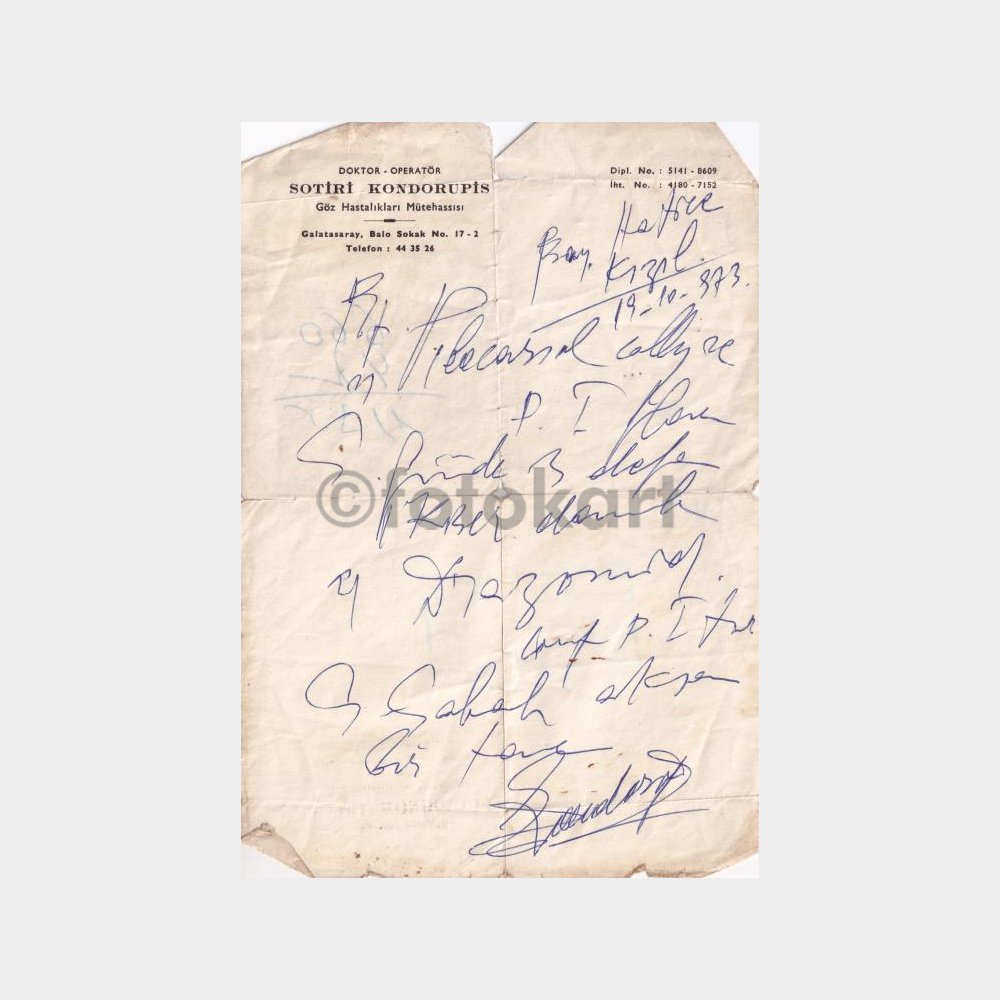 DOKTOR - OPERATÖR
SOTİRİ KONDORUPİS
Göz Hastalıkları Mütehassısı
Galatasaray, Balo Sokak No. 17-2
Telefon : 44 35 26
Dipl. No. : 5141 - 8609
İht. No. : 4180 - 7152
Bay. Hatice
Kızıl.
19-10-973.
Rp
collyre
P. I
S günde 3 defa
damla
Diazomid.
comp P. I
S Sabah akşam
bir tane
©fotokart